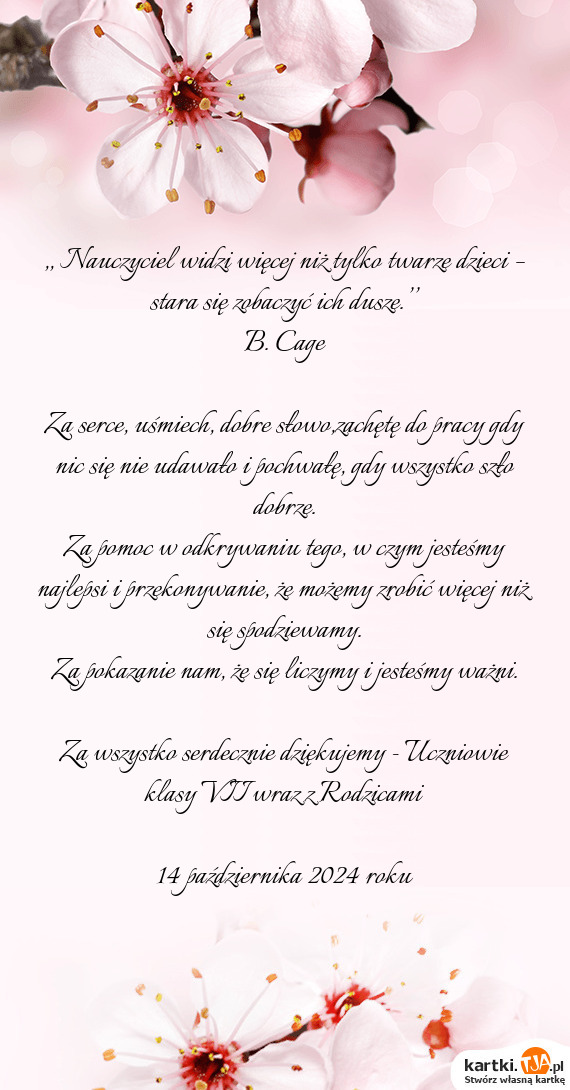 ,, Nauczyciel widzi więcej niż tylko twarze dzieci –
stara się zobaczyć ich duszę.’’
B. Cage
Za serce, uśmiech, dobre słowo,zachętę do pracy gdy
nic się nie udawało i pochwałę, gdy wszystko szło
dobrze.
Za pomoc w odkrywaniu tego, w czym jesteśmy
najlepsi i przekonywanie, że możemy zrobić więcej niż
się spodziewamy.
Za pokazanie nam, że się liczymy i jesteśmy ważni.
Za wszystko serdecznie dziękujemy - Uczniowie
klasy VII wraz z Rodzicami
14 października 2024 roku
kartki.TJA.pl
Stwórz własną kartkę